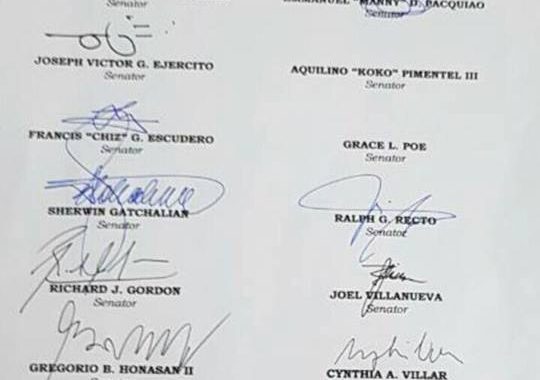 Senator
JOSEPH VICTOR G. EJERCITO
Senator
FRANCIS "CHIZ" G. ESCUDERO
Senator
SHERWIN GATCHALIAN
Senator
RICHARD J. GORDON
Senator
GREGORIO B. HONASAN II
"MANNY" D. PACQUIAO
Senator
AQUILINO "KOKO" PIMENTEL III
Senator
GRACE L. POE
Senator
RALPH G. RECTO
Senator
JOEL VILLANUEVA
Senator
CYNTHIA A. VILLAR